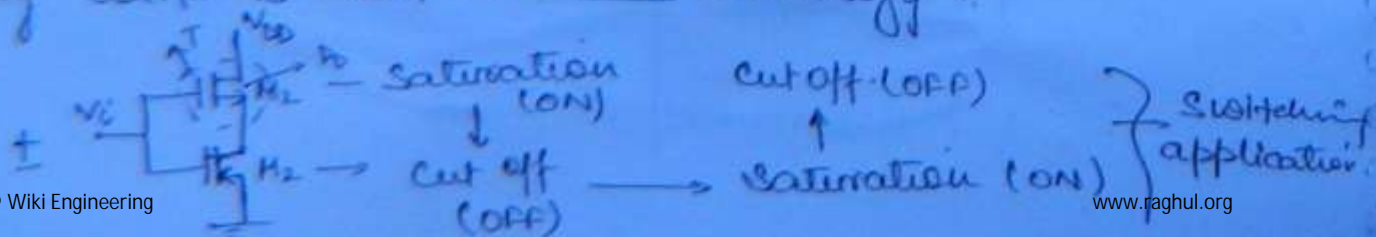 VDD
Saturation (ON)
cut off (OFF)
Vi
M2
cut off (OFF)
Saturation (ON)
Switching application.
© Wiki Engineering
www.raghul.org